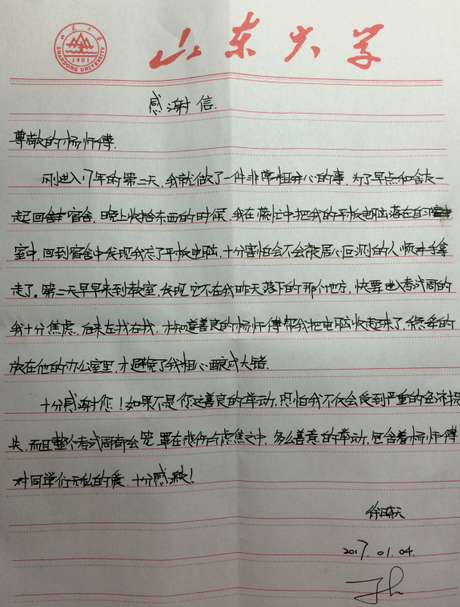 山东大学
SHANDONG UNIVERSITY
1901
感谢信
尊敬的杨师傅
刚进入17年的第二天,我就做了一件非常粗心的事,为了早点和舍友一
起回宿舍,晚上收拾东西的时候,我在慌忙中把我的平板电脑落在自习
室中,回到宿舍中发现我忘了平板电脑,十分害怕会不会被居心叵测的人顺手拿
走了。第二天早早来到教室,发现它不在我昨天落下的那个地方,快要进入考试周的
我十分焦虑,后来左找右找,才知道善良的杨师傅帮我把电脑收起来了,稳稳的
放在他的办公室里,才避免了我粗心酿成大错.
十分感谢你!如果不是你这善良的举动,恐怕我不仅会受到严重的经济损
失,而且整个考试周都会笼罩在悲伤与焦虑之中,多么善意的举动,包含着杨师傅
对同学们无私的爱,十分感激!
2017.01.04.